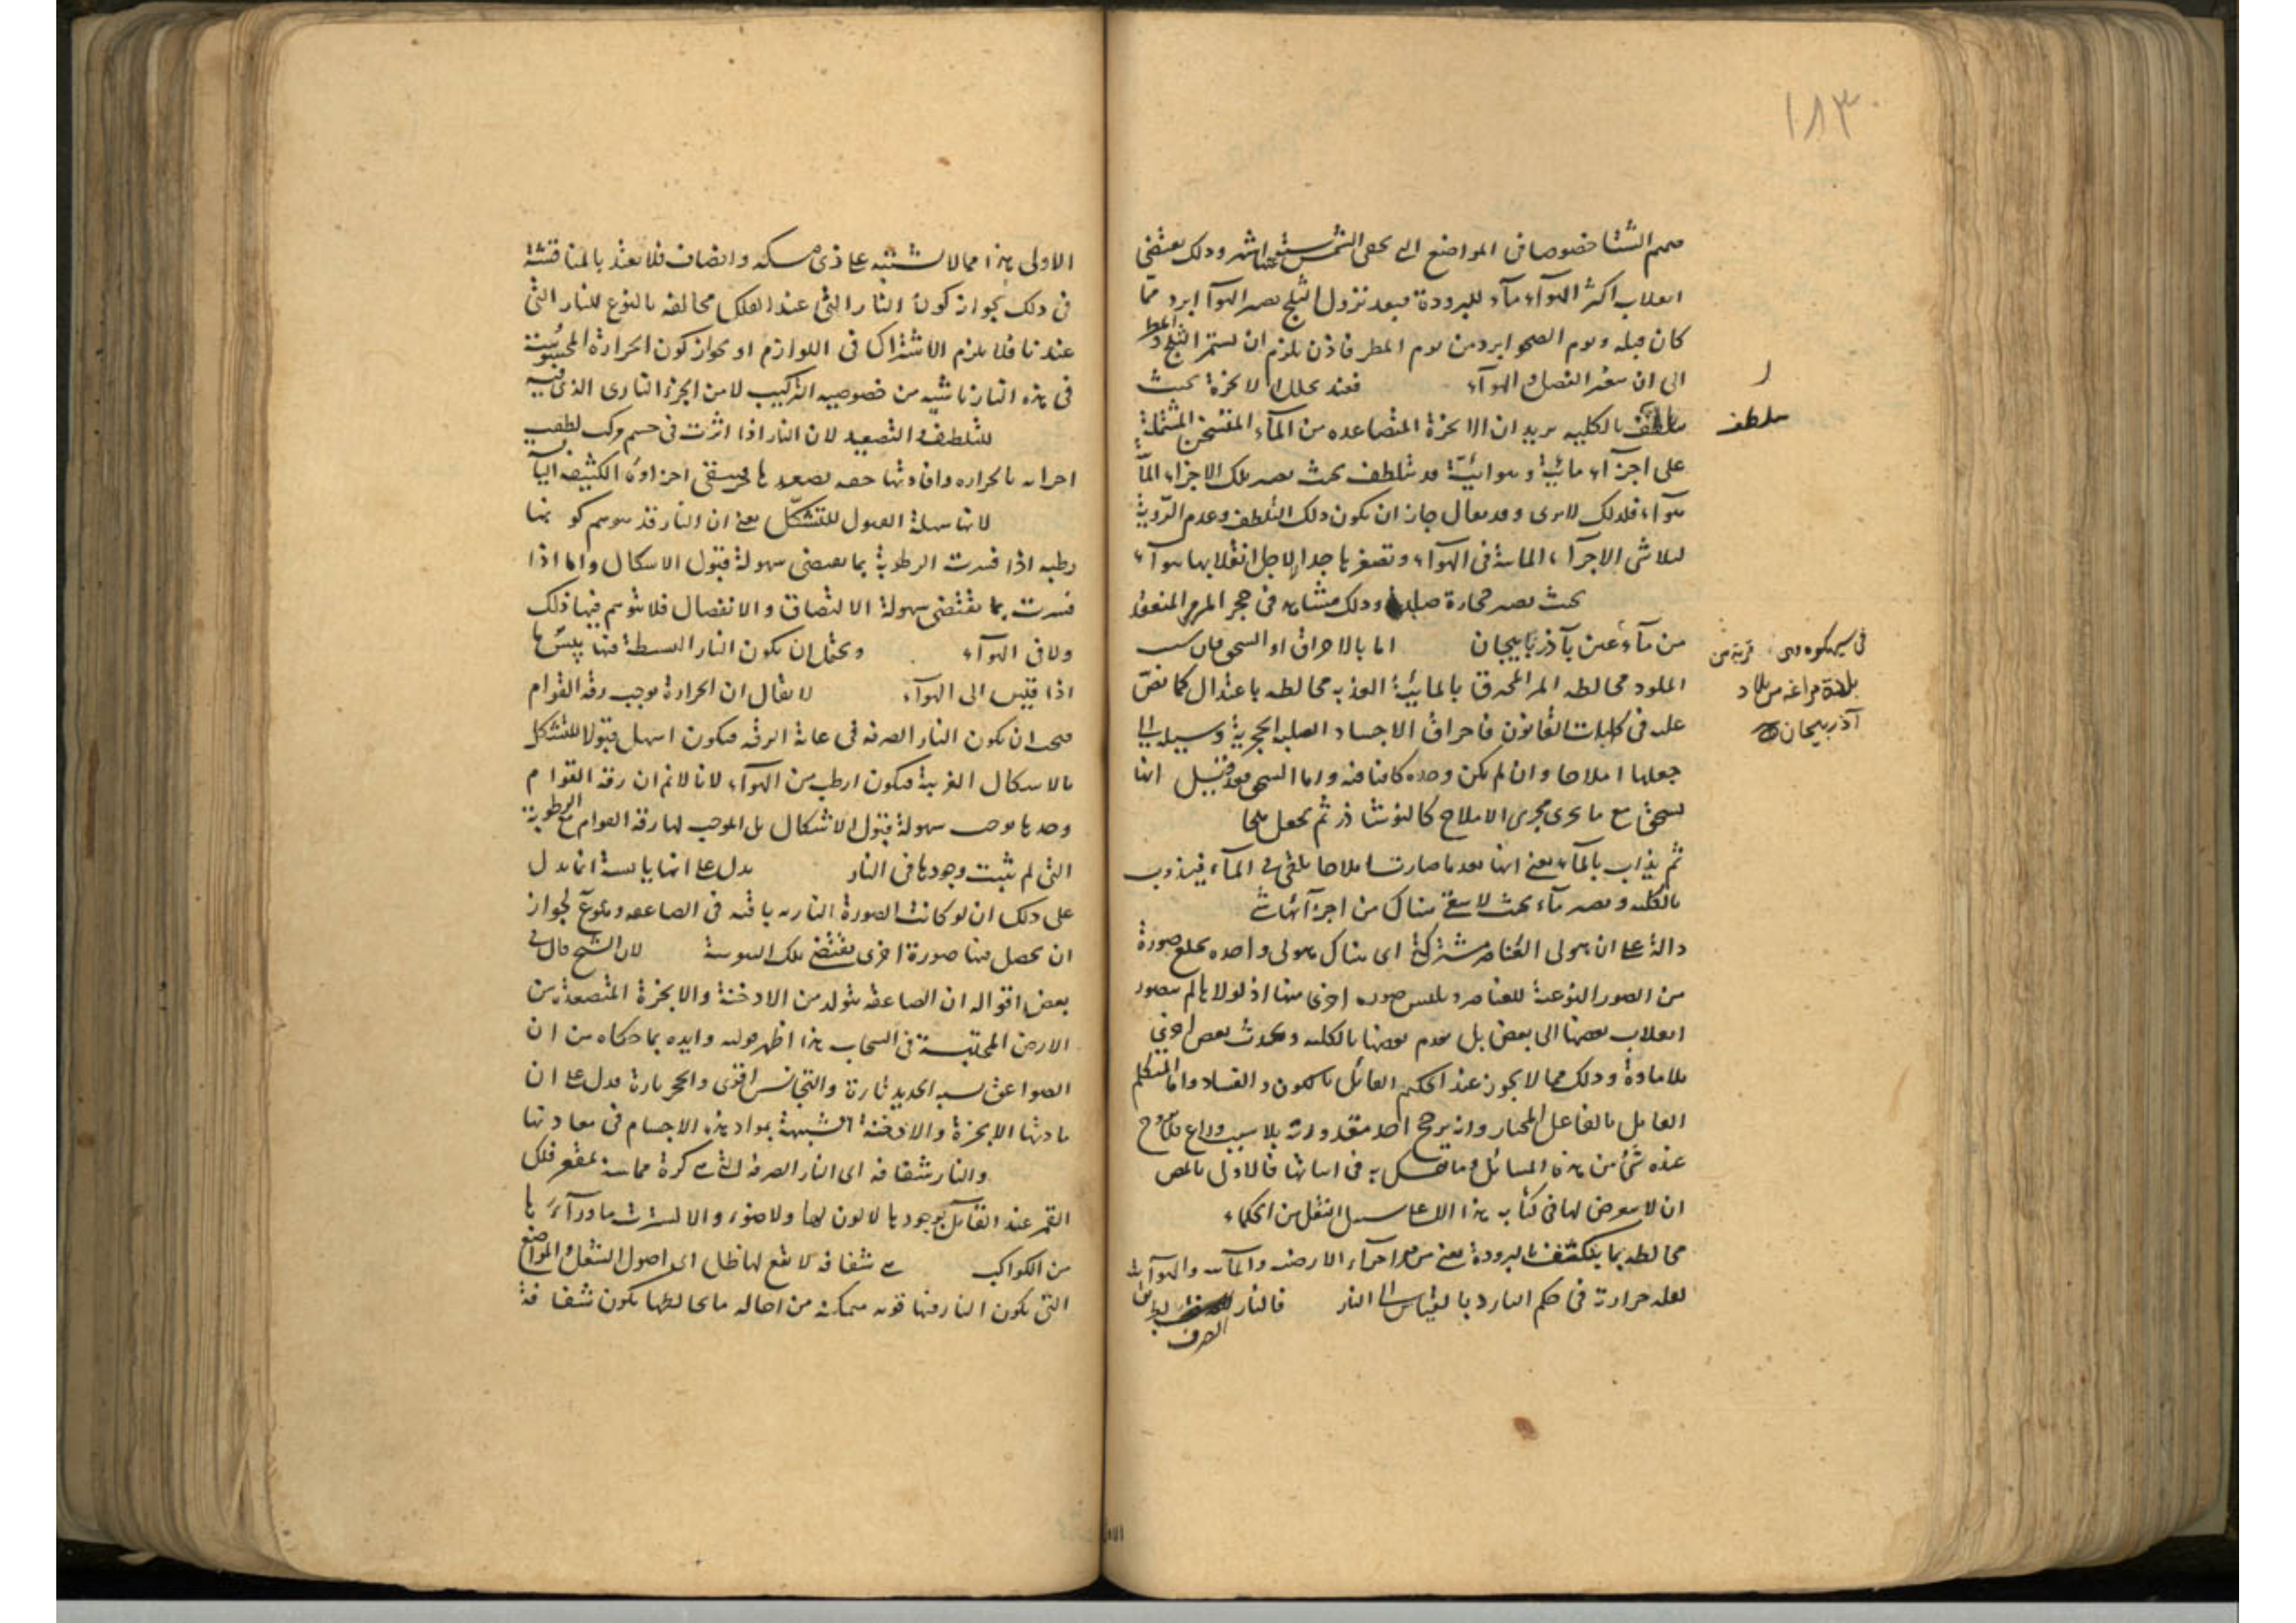 ١٨٣
صميم الشتا خصوصا فى المواضع التى يخفى الشمس عنها ستة اشهر وذلك يقتضى
انقلاب اكثر الهوآء مآء للبرودة فبعد نزول الثلج يصير الهوآ ابرد مما
كان قبله ويوم الصحو ابرد من يوم المطر فاذن يلزم ان يستمر الثلج و المطر
الى ان يتغير الفصل و الهوآء فعند تحلل الابخرة بحيث
بالكلية يريد ان الابخرة المتصاعدة من المآء المتسخن المشتملة
على اجزآء مائية وهوائية قد تتلطف بحيث يصير تلك الاجزاء المآئية
هوآء فلذلك لا يرى وقد يقال جاز ان يكون ذلك التلطف وعدم الرؤية
لتلاشى الاجزآء المائية فى الهوآء وتصغرها جدا لا لاجل انقلابها هوآء
بحيث يصير حجارة صلبة وذلك مشاهد فى حجر المرمر المنعقد
من مآء عين بآذربايجان اما بالاحراق او السحق فان سبب
الملوحة مخالطة المر المحترق بالمائية العذبة مخالطة باعتدال كما نص
عليه فى كليات القانون فاحراق الاجساد الصلبة الحجرية وسيلة الى
جعلها املاحا وان لم يكن وحده كافيا فيه واما السحق فقد قيل انها
تسحق مع ما يجرى مجرى الاملاح كالنوشاذر ثم يجعل ملحا
ثم يذاب بالمآء يعنى انها بعد ما صارت املاحا يلقى فى المآء فيذوب
بالكلية ويصير مآء بحيث لا يبقى هناك من اجزآئها شئ
دالة على ان هيولى العناصر مشتركة اى هناك هيولى واحدة يخلع صورة
من الصور النوعية للعناصر ويلبس صورة اخرى منها اذ لولاها لم يتصور
انقلاب بعضها الى بعض بل يعدم بعضها بالكلية ويحدث بعض اخرى
بلا مادة وذلك مما لا يجوز عند الحكيم القائل بالكون والفساد واما المتكلم
القايل بالفاعل المختار وانه يرجح احد مقدوراته بلا سبب وداع
عنده شئ من هذه المسائل وما يتمسك به فى اثباتها فالاولى بالمص
ان لا يتعرض لها فى كتابه هذا الا على سبيل النقل من الحكماء
مخالطة بما يتكثف بالبرودة يعنى من الاجزآء الارضية والمآئية والهوآئية
لعله حرارته فى حكم البارد بالقياس الى النار فالنار الصرف
ر
يتلطف
قرية من
بلدة مراغه من بلاد
آذربيجان
الاولى هذا مما لا يشتبه على ذى مسكة وانصاف فلا يعتد بالمناقشة
فى ذلك بجواز كون النار التى عند الفلك مخالفة بالنوع للنار التى
عندنا فلا يلزم الاشتراك فى اللوازم او بجواز كون الحرارة المحسوسة
فى هذه النار ناشية من خصوصية التركيب لا من الجزء النارى الذى فيه
للتلطف و التصعيد لان النار اذا اثرت فى جسم مركب لطفت
اجزائه بالحرارة وافادتها خفة تصعدها فيبقى اجزاؤه الكثيفة اليابسة
لانها سهلة القبول للتشكل يعنى ان النار قد يتوهم كونها
رطبة اذا فسرت الرطوبة بما يقتضى سهولة قبول الاشكال واما اذا
فسرت بما يقتضى سهولة الالتصاق والانفصال فلا يتوهم فيها ذلك
ولا فى الهوآء ويحتمل ان يكون النار البسيطة فيها يبس ما
اذا قيس الى الهوآء لا يقال ان الحرارة يوجب رقة القوام
فيجب ان يكون النار الصرفة فى غاية الرقة فيكون اسهل قبولا للتشكل
بالاشكال الغريبة فيكون ارطب من الهوآء لانا لا نم ان رقة القوام
وحدها يوجب سهولة قبول الاشكال بل الموجب لها رقة القوام مع الرطوبة
التى لم يثبت وجودها فى النار يدل على انها يابسة انما يدل
على ذلك ان لو كانت الصورة النارية باقية فى الصاعقة وهو مم لجواز
ان يحصل فيها صورة اخرى يقتضى تلك اليبوسة لان الشيخ قال فى
بعض اقواله ان الصاعقة يتولد من الادخنة والابخرة المتصعدة من
الارض المحتبسة فى السحاب هذا اظهر قوليه وايده بما حكاه من ان
الصواعق يشبه الحديد تارة والنحاس اخرى والحجر تارة فدل على ان
مادتها الابخرة والادخنة الشبيهة بمواد هذه الاجسام فى معادنها
والنار شفافة اى النار الصرفة التى هى كرة مماسة لمقعر فلك
القمر عند القائل بوجودها لا لون لها ولا ضوء والا لسترت ما ورآءها
من الكواكب هى شفافة لا يقع لها ظل اى اصول الشعل و المواضع
التى يكون النار فيها قوية متمكنة من احالة ما يخالطها يكون شفافة